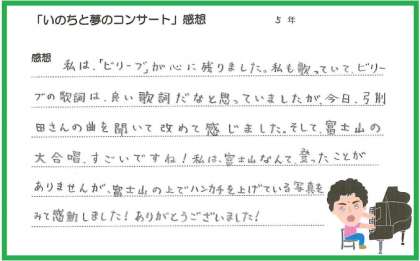 「いのちと夢のコンサート」感想
5年
感想
私は、「ビリーブ」が心に残りました。私も歌っていて、ビリー
ブの歌詞は、良い歌詞だなと思っていましたが、今日、弓削
田さんの曲を聞いて改めて感じました。そして、富士山の
大合唱、すごいですね！私は、富士山なんて、登ったことが
ありませんが、富士山の上でハンカチを上げている写真を
みて感動しました！ありがとうございました！